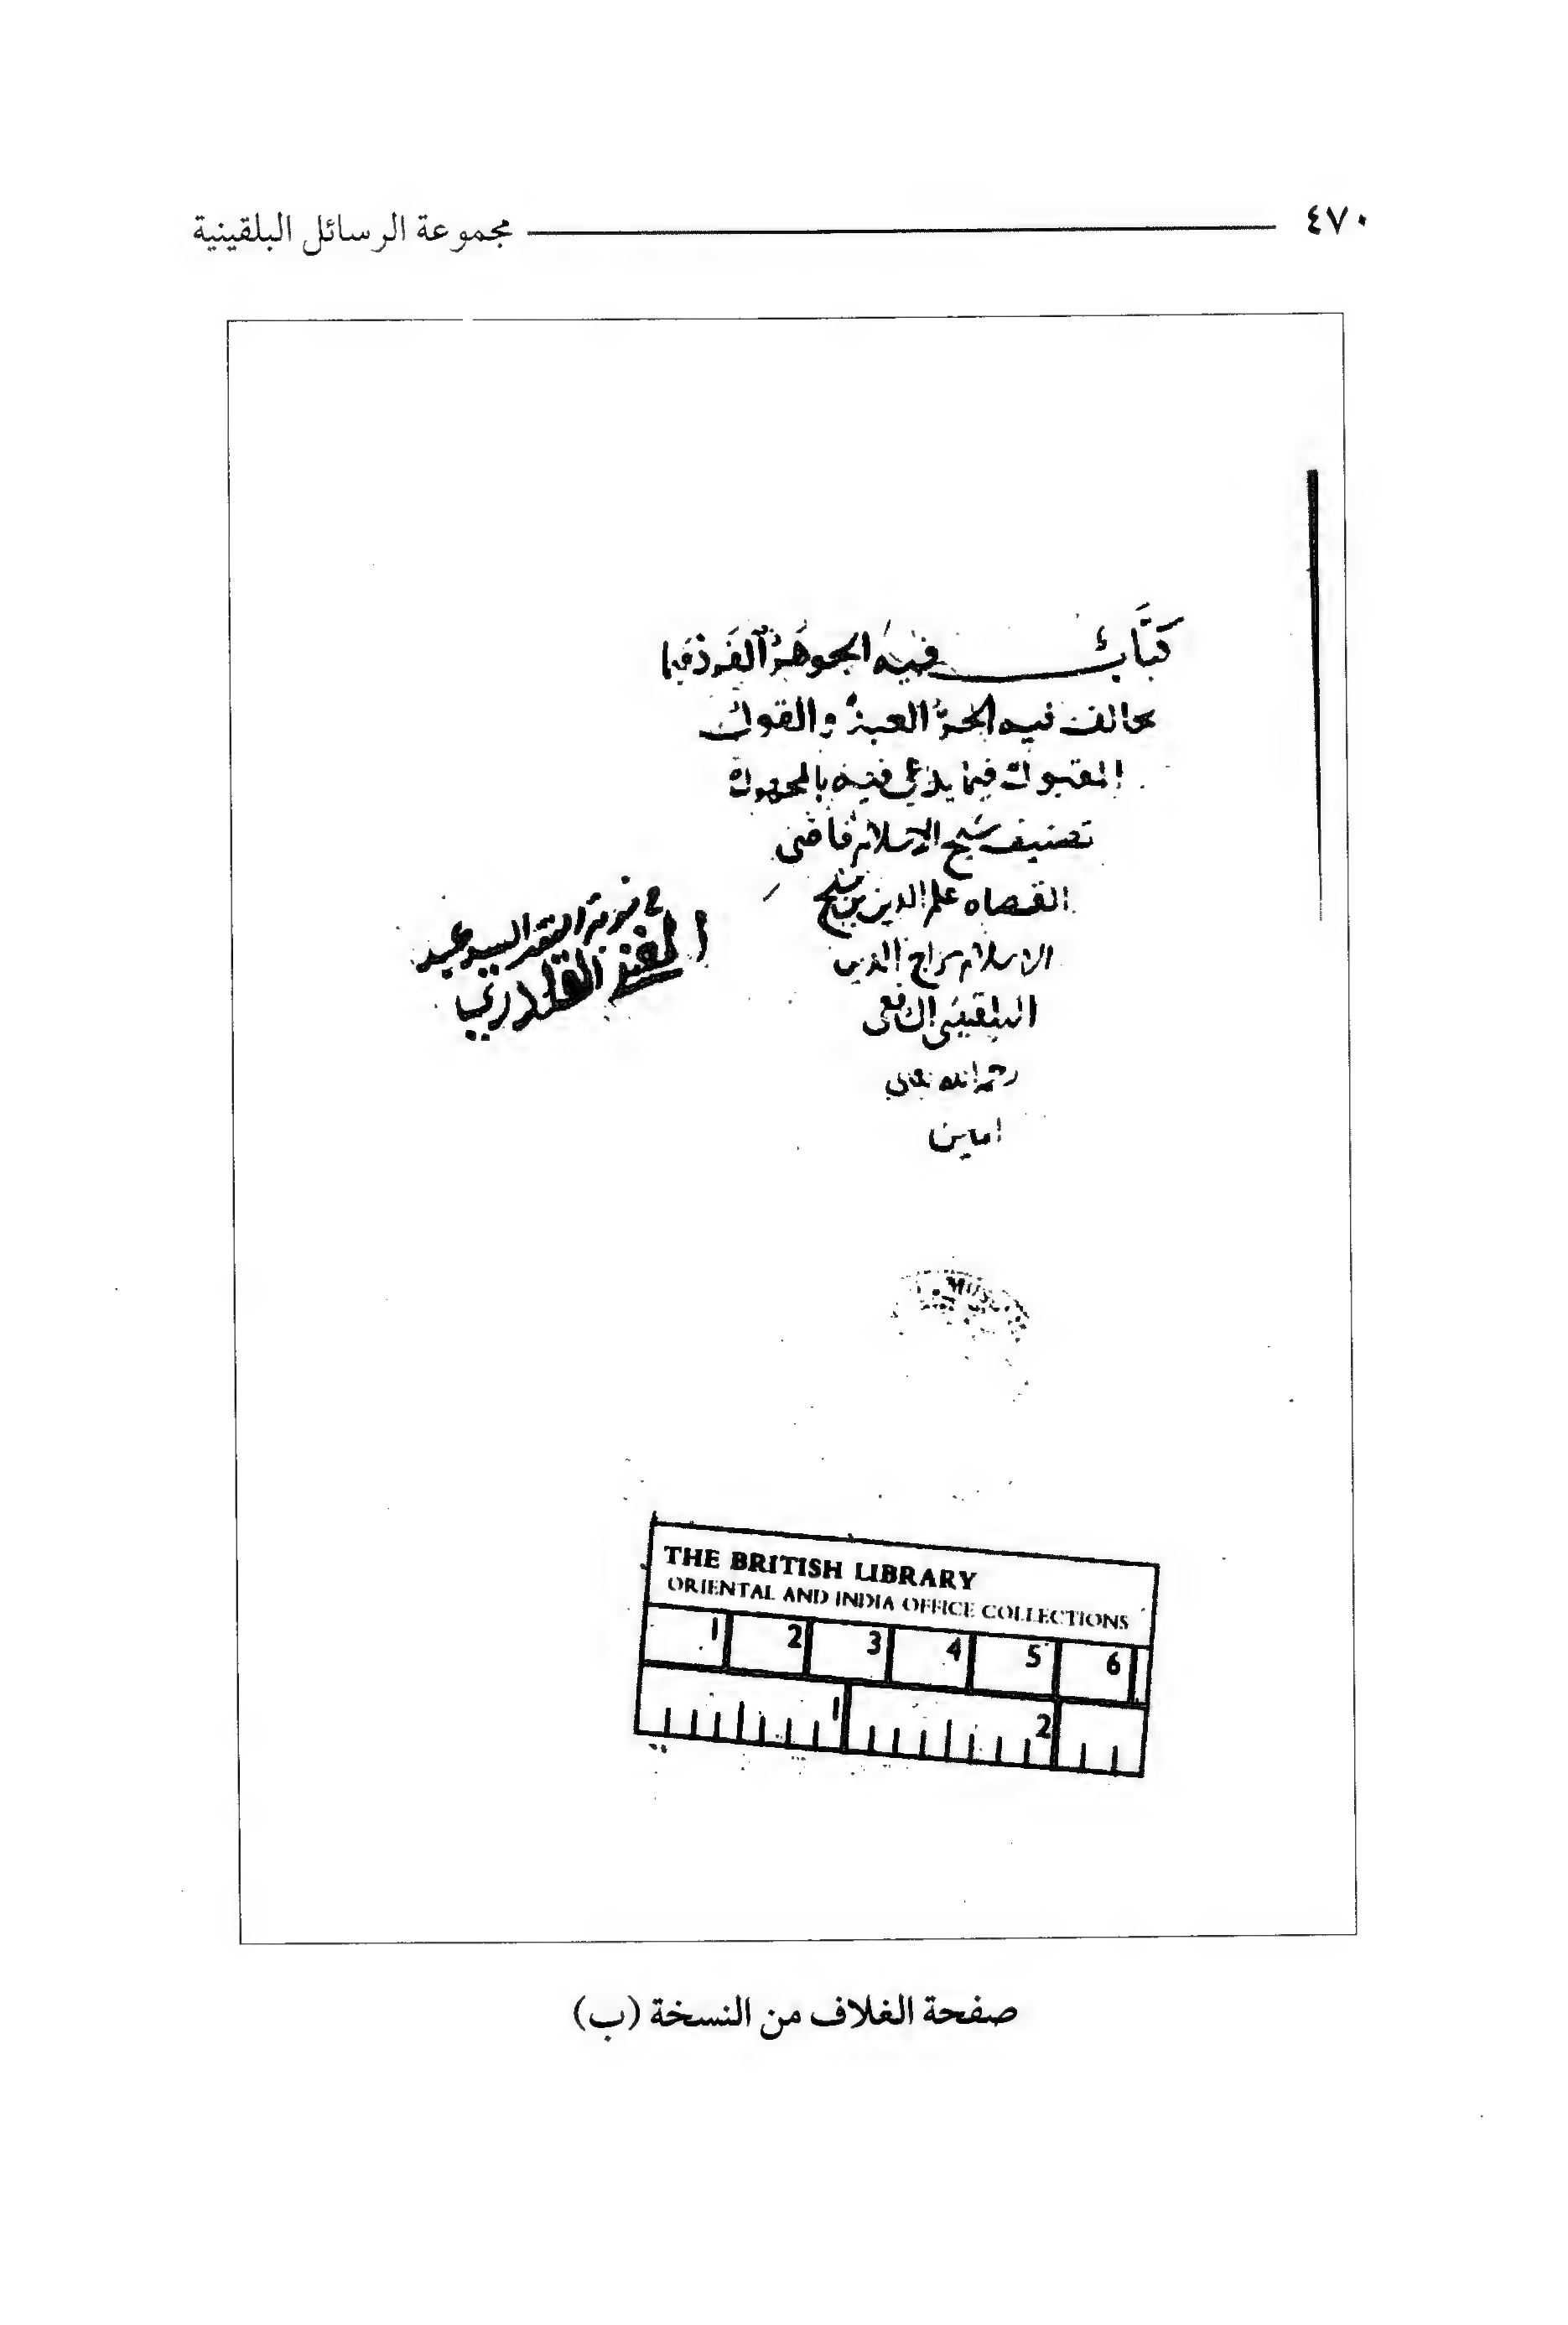 ٤٧٠ مجموعة الرسائل البلقينية
كتاب فيه الجوهر الفرد فيما
يخالف فيه الحر العبد والقول
المقبول فيما يدعى فيه بالمجهول
تصنيف شيخ الاسلام قاضى
القضاه علم الدين بن شيخ
الاسلام سراج الدين
البلقينى الشافعى
رحمه الله تعالى
امين
في نوبة الفقير السيد عبد
الغني القادري
MUS
THE BRITISH LIBRARY
ORIENTAL AND INDIA OFFICE COLLECTIONS
1 2 3 4 5 6
1 2
صفحة الغلاف من النسخة (ب)